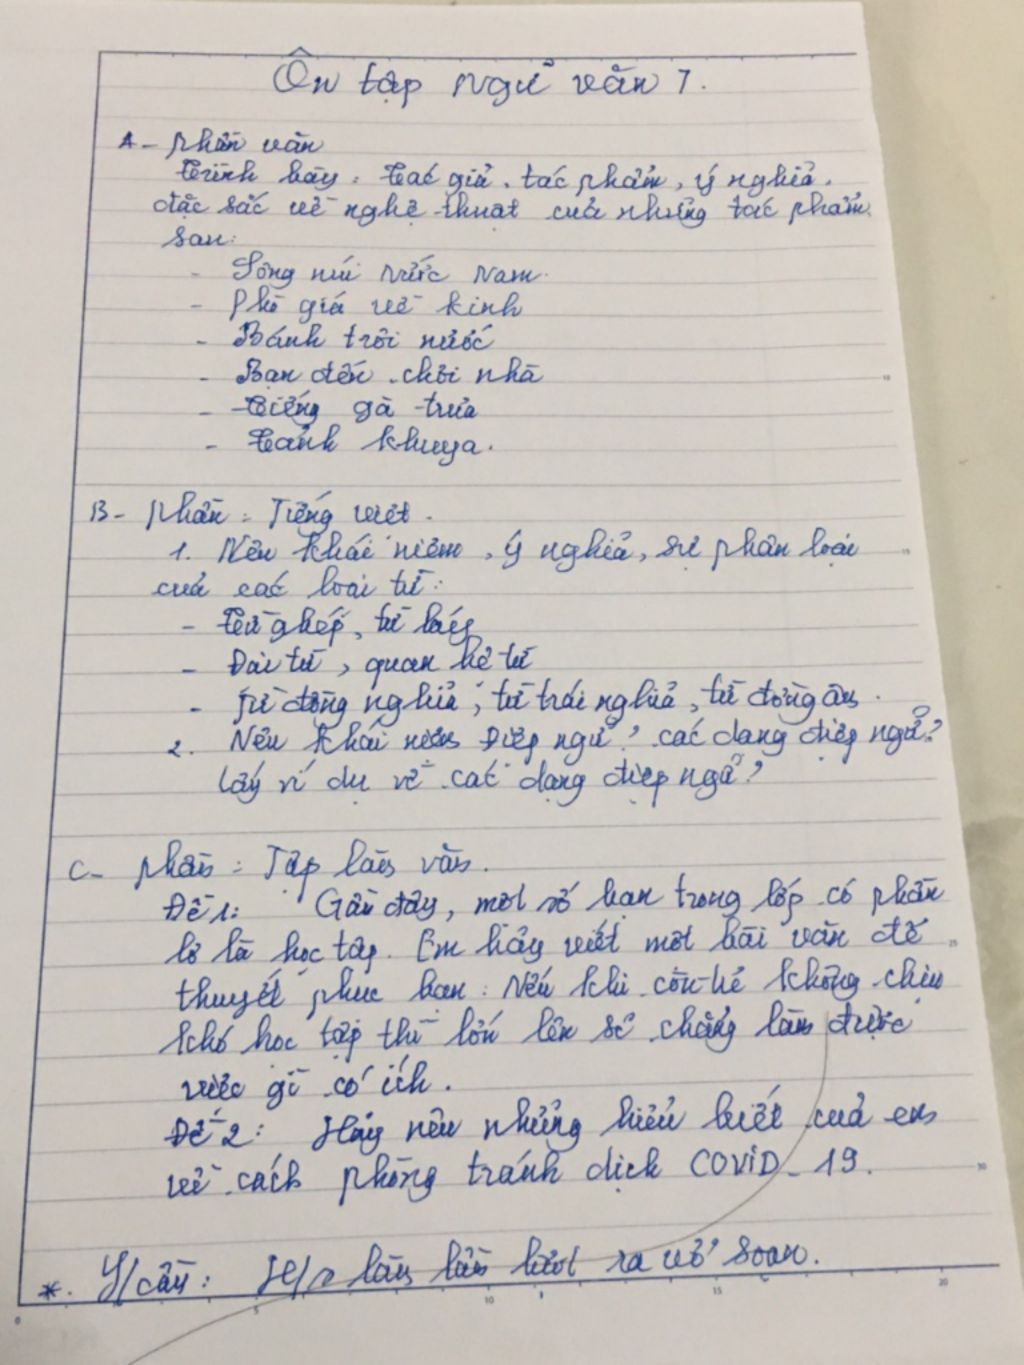 Ôn tập Ngữ văn 7.
A - phần văn
trình bày: tác giả, tác phẩm, ý nghĩa,
đặc sắc về nghệ thuật của những tác phẩm
sau:
- Sông núi nước Nam.
- Phò giá về kinh
- Bánh trôi nước
- Bạn đến chơi nhà
- Tiếng gà trưa
- Cảnh khuya.
B - phần: Tiếng việt.
1. Nêu khái niệm, ý nghĩa, sự phân loại
của các loại từ:
- từ ghép, từ láy
- Đại từ, quan hệ từ
- từ đồng nghĩa, từ trái nghĩa, từ đồng âm.
2. Nêu khái niệm Điệp ngữ? các dạng điệp ngữ?
lấy ví dụ về các dạng điệp ngữ?
C - phần: Tập làm văn.
Đề 1: Gần đây, một số bạn trong lớp có phần
lơ là học tập. Em hãy viết một bài văn để
thuyết phục bạn: Nếu khi còn trẻ không chịu
khó học tập thì lớn lên sẽ chẳng làm được
việc gì có ích.
Đề 2: Hãy nêu những hiểu biết của em
về cách phòng tránh dịch COVID-19.
*. Y/cầu: H/s làm lần lượt ra vở soạn.
5 10 15 20